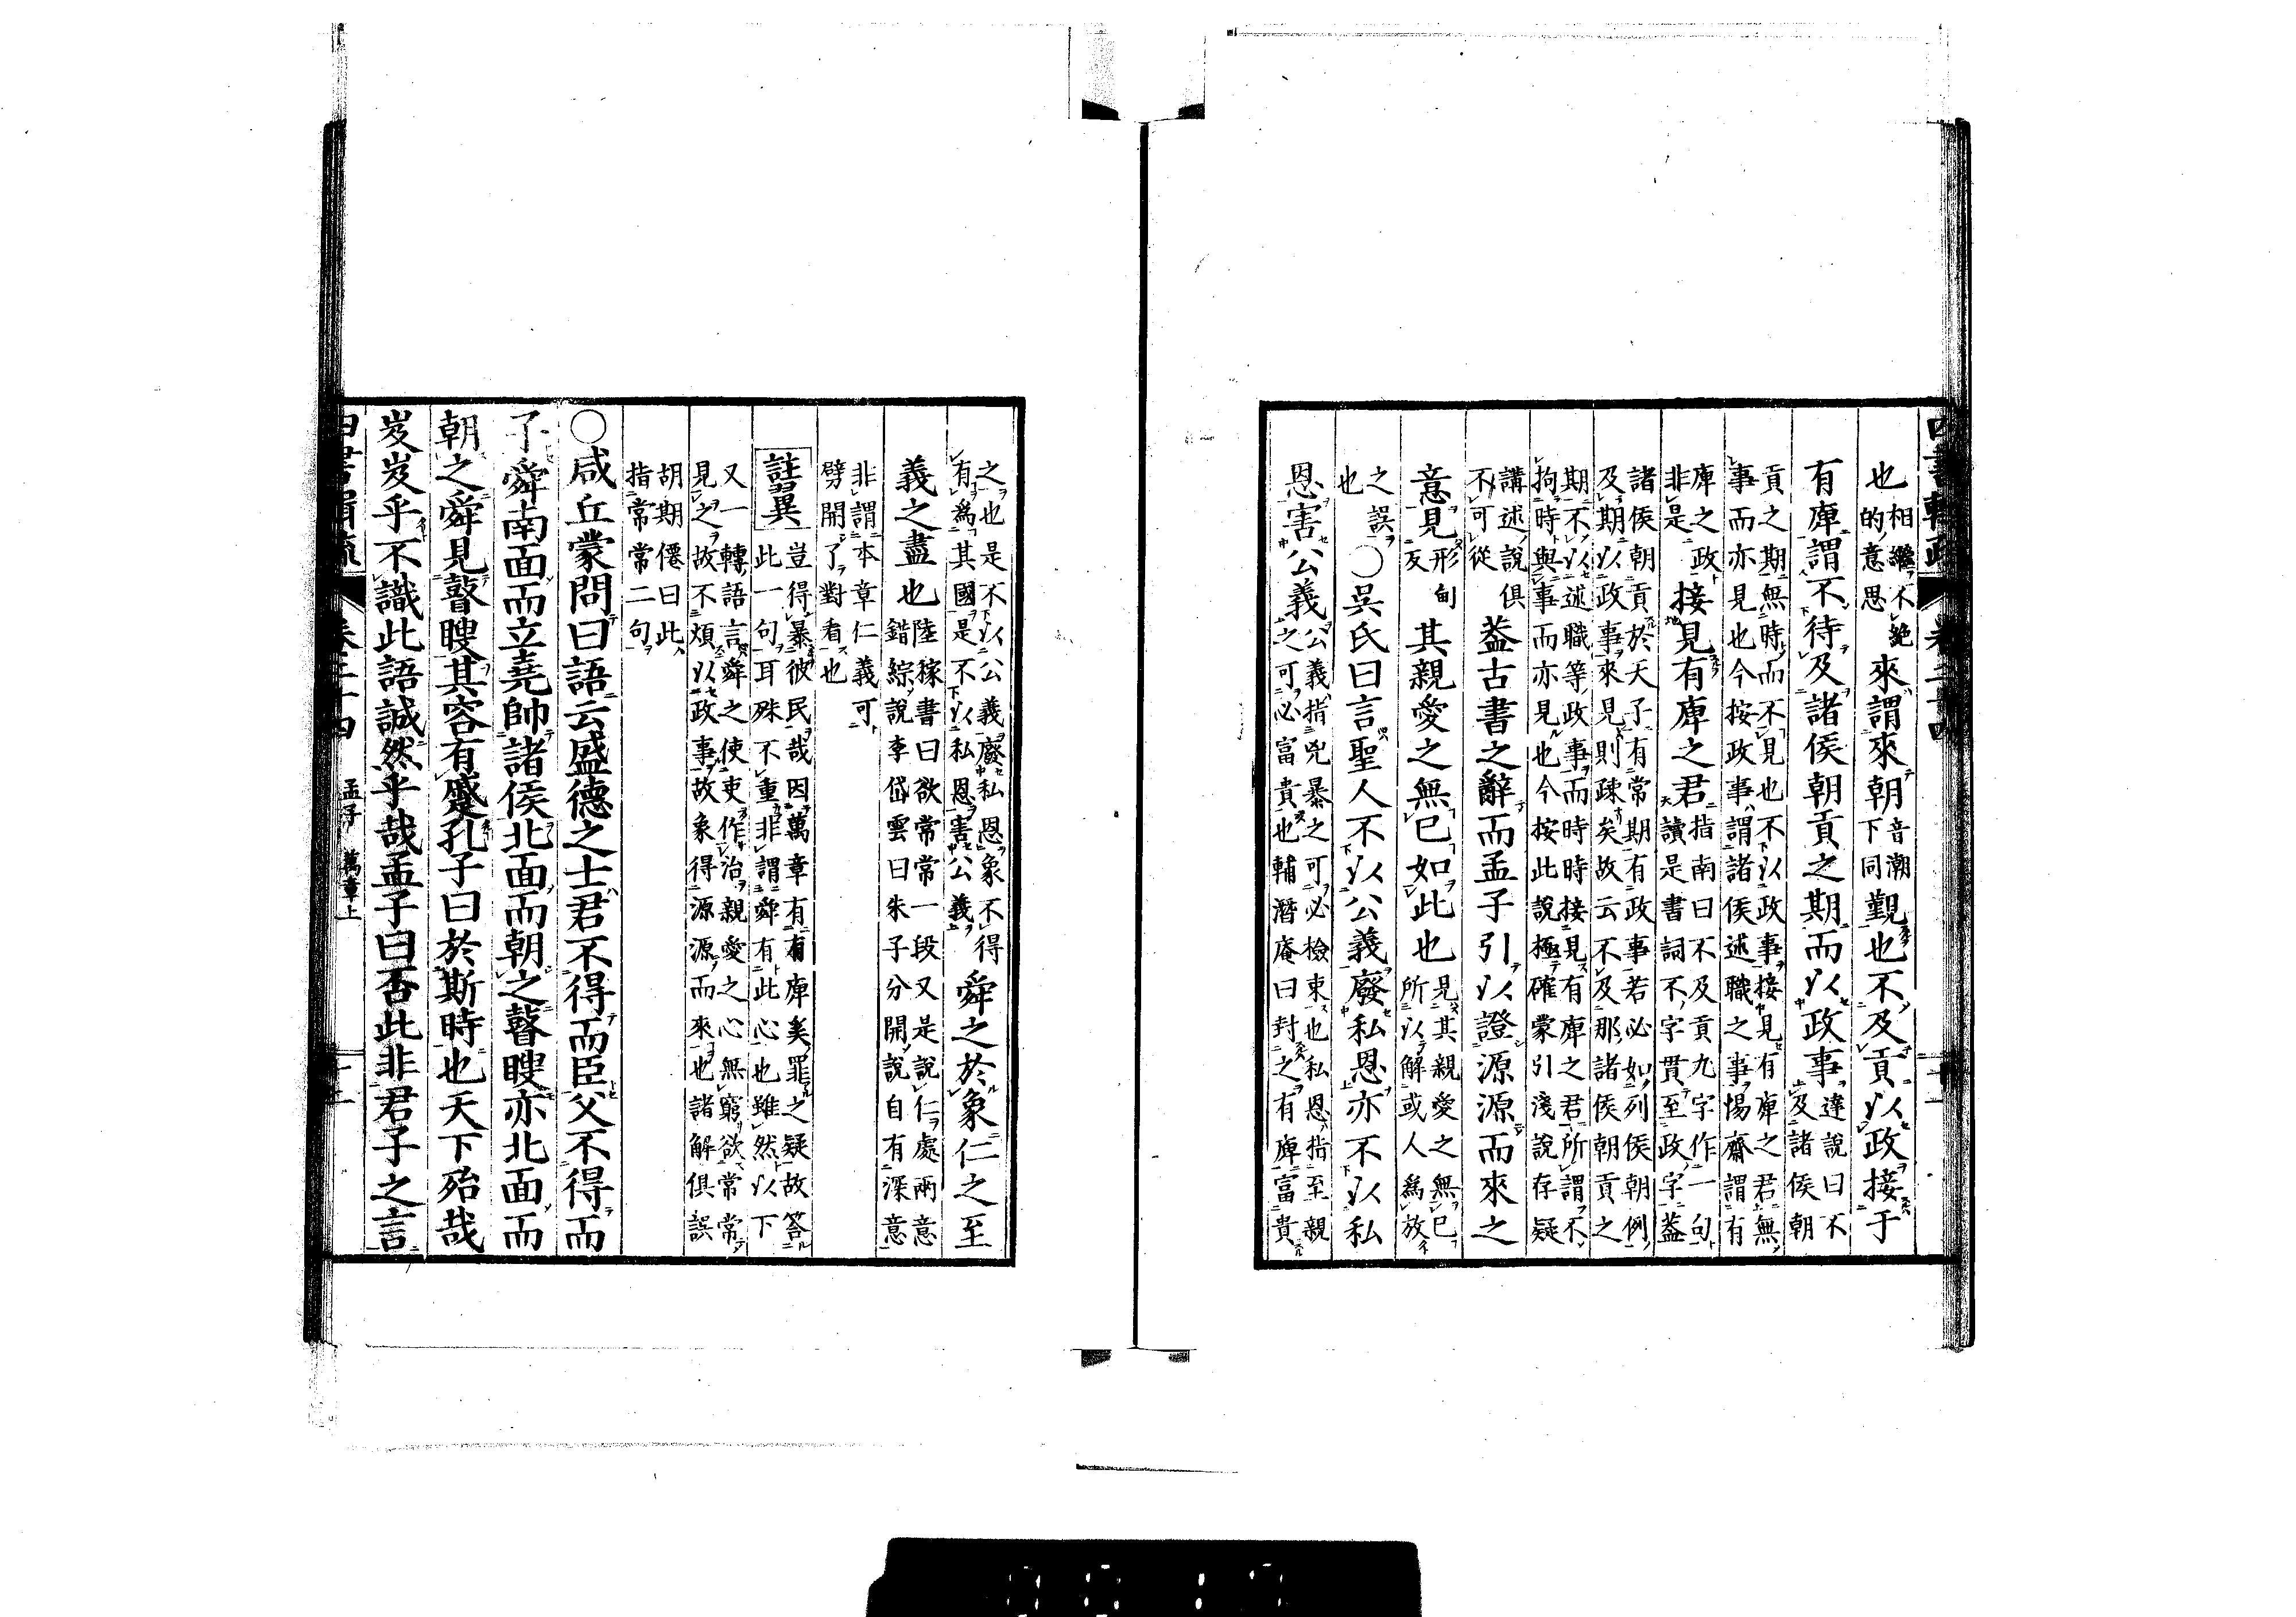 四書輯疏 卷二十四 十一
也相繼不絶的意思來謂來朝音潮下同覲也不及貢以政接于
有庳謂不待及諸侯朝貢之期而以政事達說曰不及諸侯朝
貢之期無時而不見也不以政事接見有庳之君無
事而亦見也今按政事謂諸侯述職之事惕齋謂有
庳之政非是接見有庳之君指南曰不及貢九字作一句讀是書詞不字貫至政字蓋
諸侯朝貢於天子有常期有政事若必如列侯朝例
及期以政事來見則疎矣故云不及那諸侯朝貢之
期不以述職等政事而時時接見有庳之君所謂不
拘時與事而亦見也今按此說極確蒙引淺說存疑
講述說俱不可從蓋古書之辭而孟子引以證源源而來之
意見形甸反其親愛之無已如此也見其親愛之無已所以解或人爲放
之誤也○吳氏曰言聖人不以公義廢私恩亦不以私
恩害公義公義指兇暴之可必檢束也私恩指至親之可必富貴也輔潛庵曰封之有庳富貴
之也是不以公義廢私恩象不得有爲其國是不以私恩害公義舜之於象仁之至
義之盡也陸稼書曰欲常常一段又是說仁處兩意錯綜說李岱雲曰朱子分開說自有深意
非謂本章仁義可劈開了對看也
註異豈得暴彼民哉因萬章有有庳奚罪之疑故答此一句耳殊不重非謂舜有此心也雖然以下
又一轉語言舜之使吏作治親愛之心無窮欲常常
見之故不煩以政事故象得源源而來也諸解俱誤
胡期僊曰此指常常二句
○咸丘蒙問曰語云盛德之士君不得而臣父不得而
子舜南面而立堯帥諸侯北面而朝之瞽瞍亦北面而
朝之舜見瞽瞍其容有蹙孔子曰於斯時也天下殆哉
岌岌乎不識此語誠然乎哉孟子曰否此非君子之言
四書輯疏 卷二十四 孟子 萬章上 十二